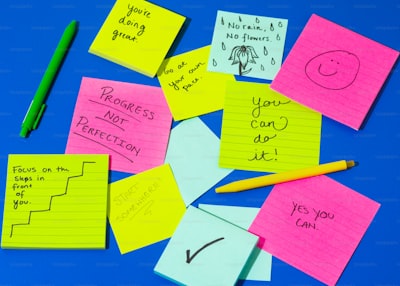 you're
doing
great.
Go at
your own
pace.
No rain,
No flowers.
PROGRESS
NOT
PERFECTION
You
can
do
it!
FOCUS ON the
Steps in
front
of
you.
START
SOMEWHERE
YES YOU
CAN.